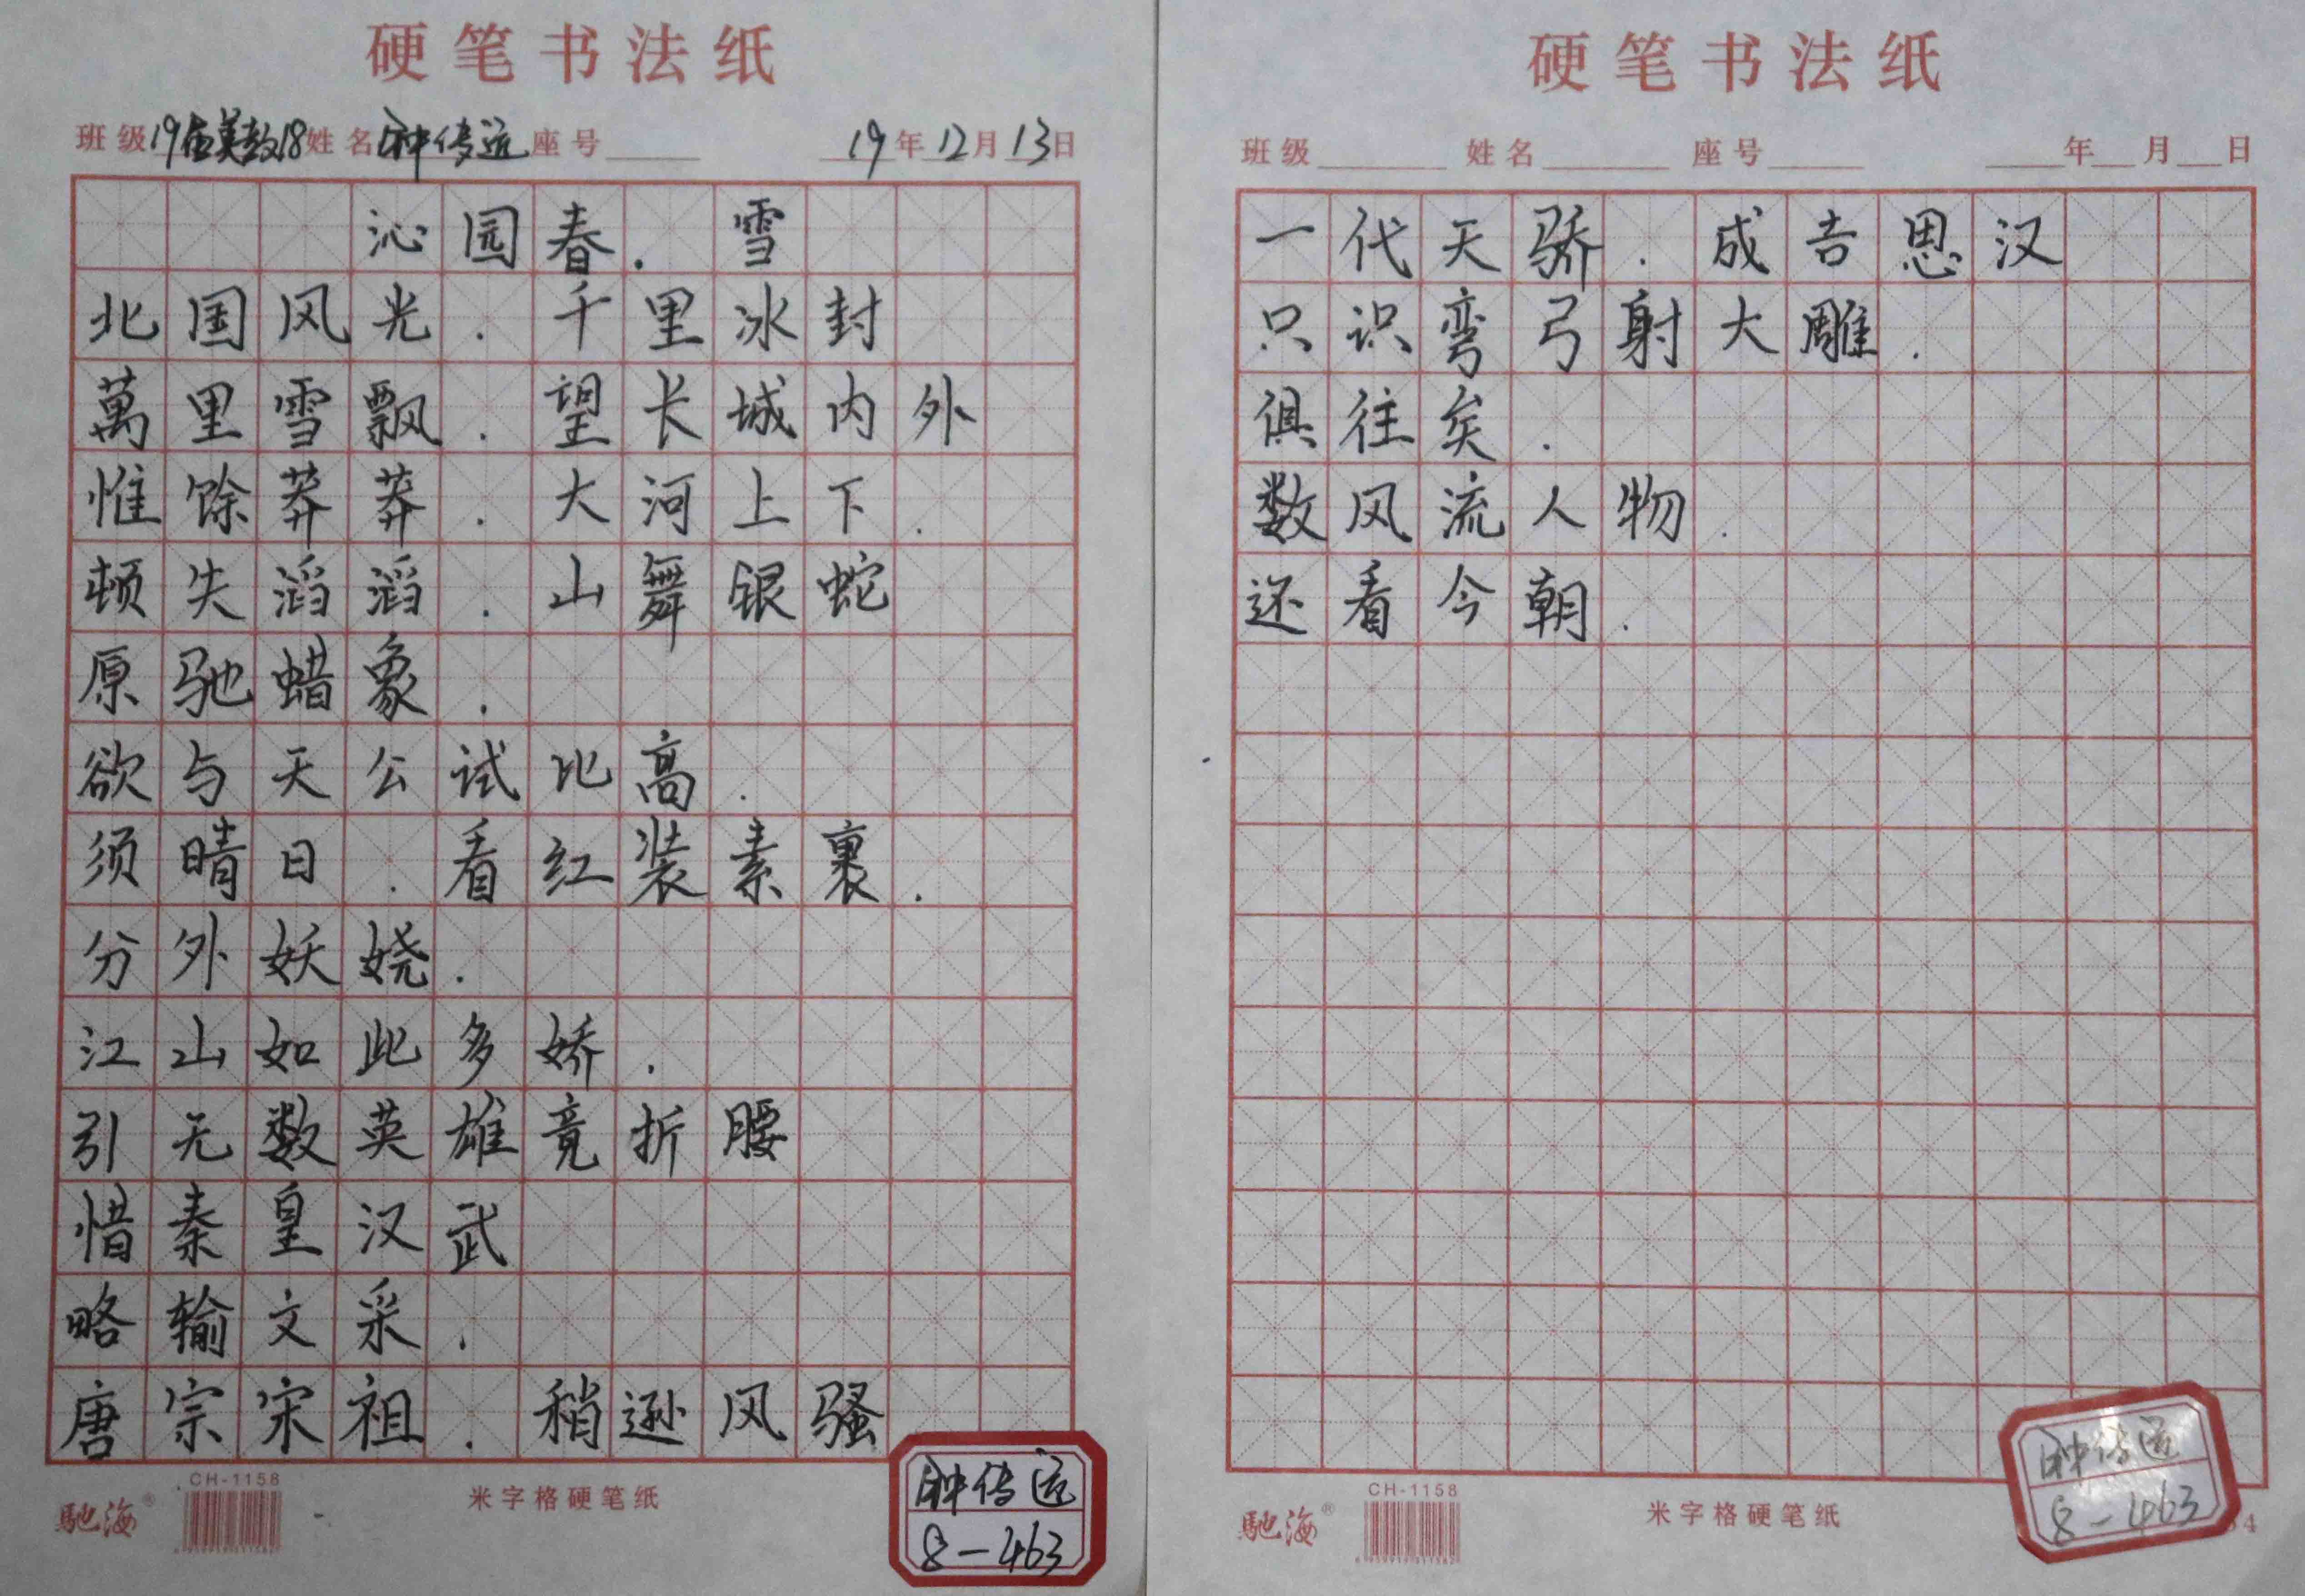 硬笔书法纸
班级19届美教18姓名钟传远座号 19年12月13日
沁园春.雪
北国风光.千里冰封
萬里雪飘.望长城内外
惟馀莽莽.大河上下.
顿失滔滔.山舞银蛇
原驰蜡象.
欲与天公试比高.
须晴日.看红装素裹.
分外妖娆.
江山如此多娇.
引无数英雄竟折腰
惜秦皇汉武
略输文采.
唐宗宋祖.稍逊风骚
CH-1158
馳海®
米字格硬笔纸
钟传远
8-463
硬笔书法纸
班级 姓名 座号 年 月 日
一代天骄.成吉思汉
只识弯弓射大雕.
俱往矣.
数风流人物.
还看今朝.
CH-1158
馳海®
米字格硬笔纸
钟传远
8-463